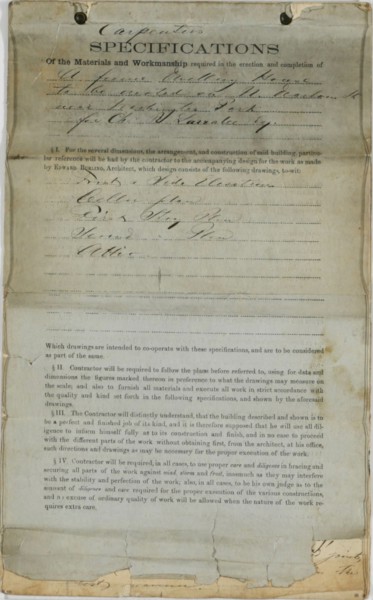 Carpenters
SPECIFICATIONS
Of the Materials and Workmanship required in the erection and completion of
A frame Dwelling House
to be erected on
near Washington Park
for Esq.
§ I. For the several dimensions, the arrangement, and construction of said building, particu-
lar reference will be had by the contractor to the accompanying design for the work as made
by EDWARD BURLING, Architect, which design consists of the following drawings, to-wit:
Front & Side Elevations
Cellar plan
First Story Plan
Second " Plan
Attic
Which drawings are intended to co-operate with these specifications, and are to be considered
as part of the same.
§ II. Contractor will be required to follow the plans before referred to, using for data and
dimensions the figures marked thereon in preference to what the drawings may measure on
the scale; and also to furnish all materials and execute all work in strict accordance with
the quality and kind set forth in the following specifications, and shown by the aforesaid
drawings.
§ III. The Contractor will distinctly understand, that the building described and shown is to
be a perfect and finished job of its kind, and it is therefore supposed that he will use all dili-
gence to inform himself fully as to its construction and finish, and in no case to proceed
with the different parts of the work without obtaining first, from the architect, at his office,
such directions and drawings as may be necessary for the proper execution of the work.
§ IV. Contractor will be required, in all cases, to use proper care and diligence in bracing and
securing all parts of the work against wind storm and frost, inasmuch as they may interfere
with the stability and perfection of the work; also, in all cases, to be his own judge as to the
amount of diligence and care required for the proper execution of the various constructions,
and no excuse of ordinary quality of work will be allowed when the nature of the work re-
quires extra care.